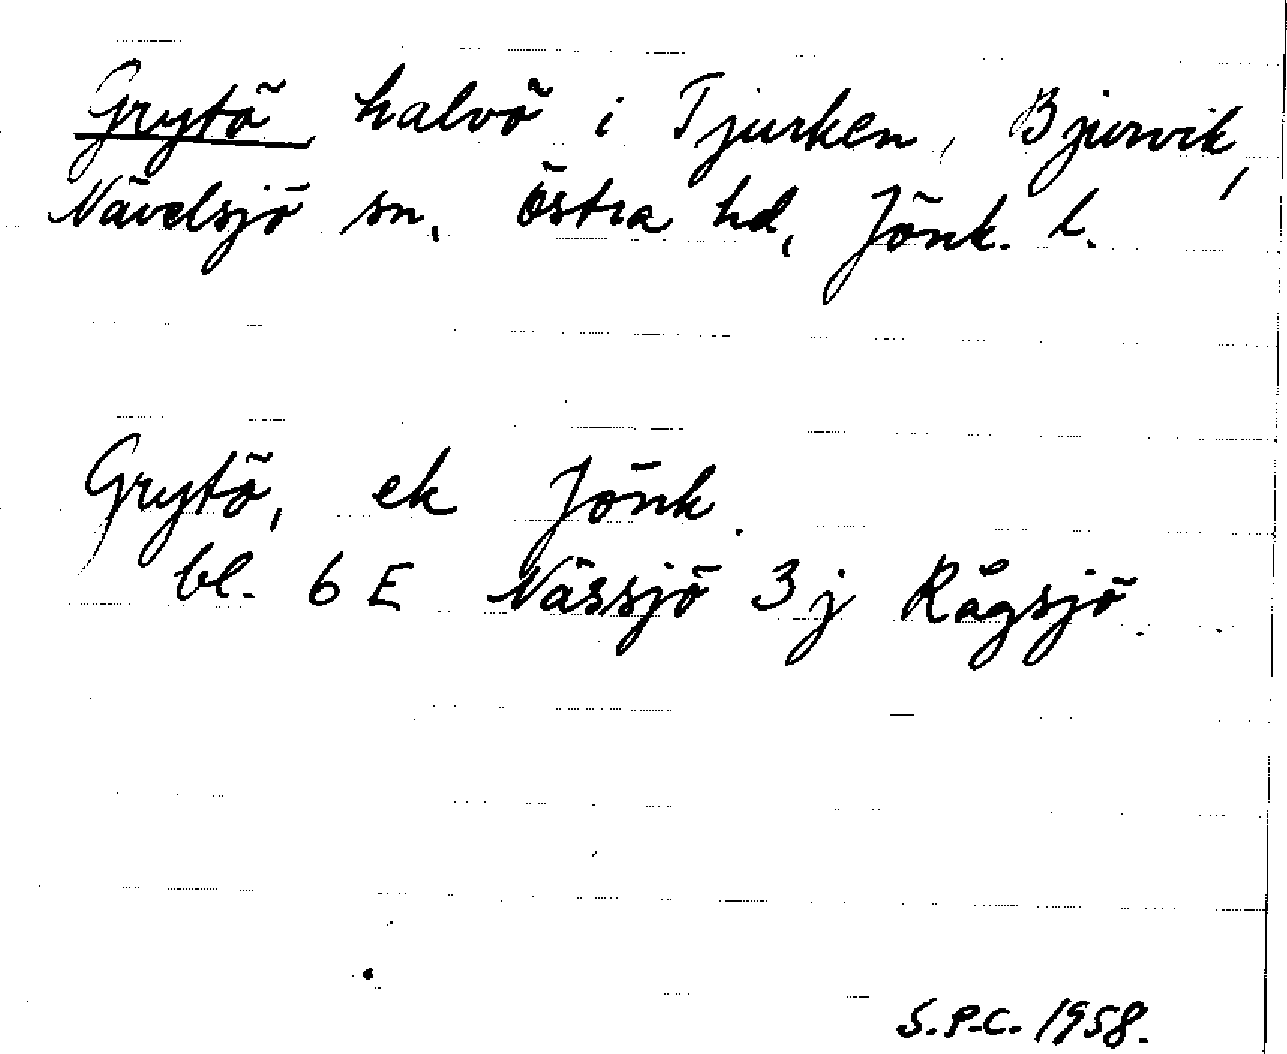 Grytö halvö i Tjurken, Bjurvik,
Nävelsjö sn, Östra hd, Jönk. l.
Grytö, ek Jönk.
bl. 6 E Nässjö 3 j Rågsjö.
S.P.C. 1958.